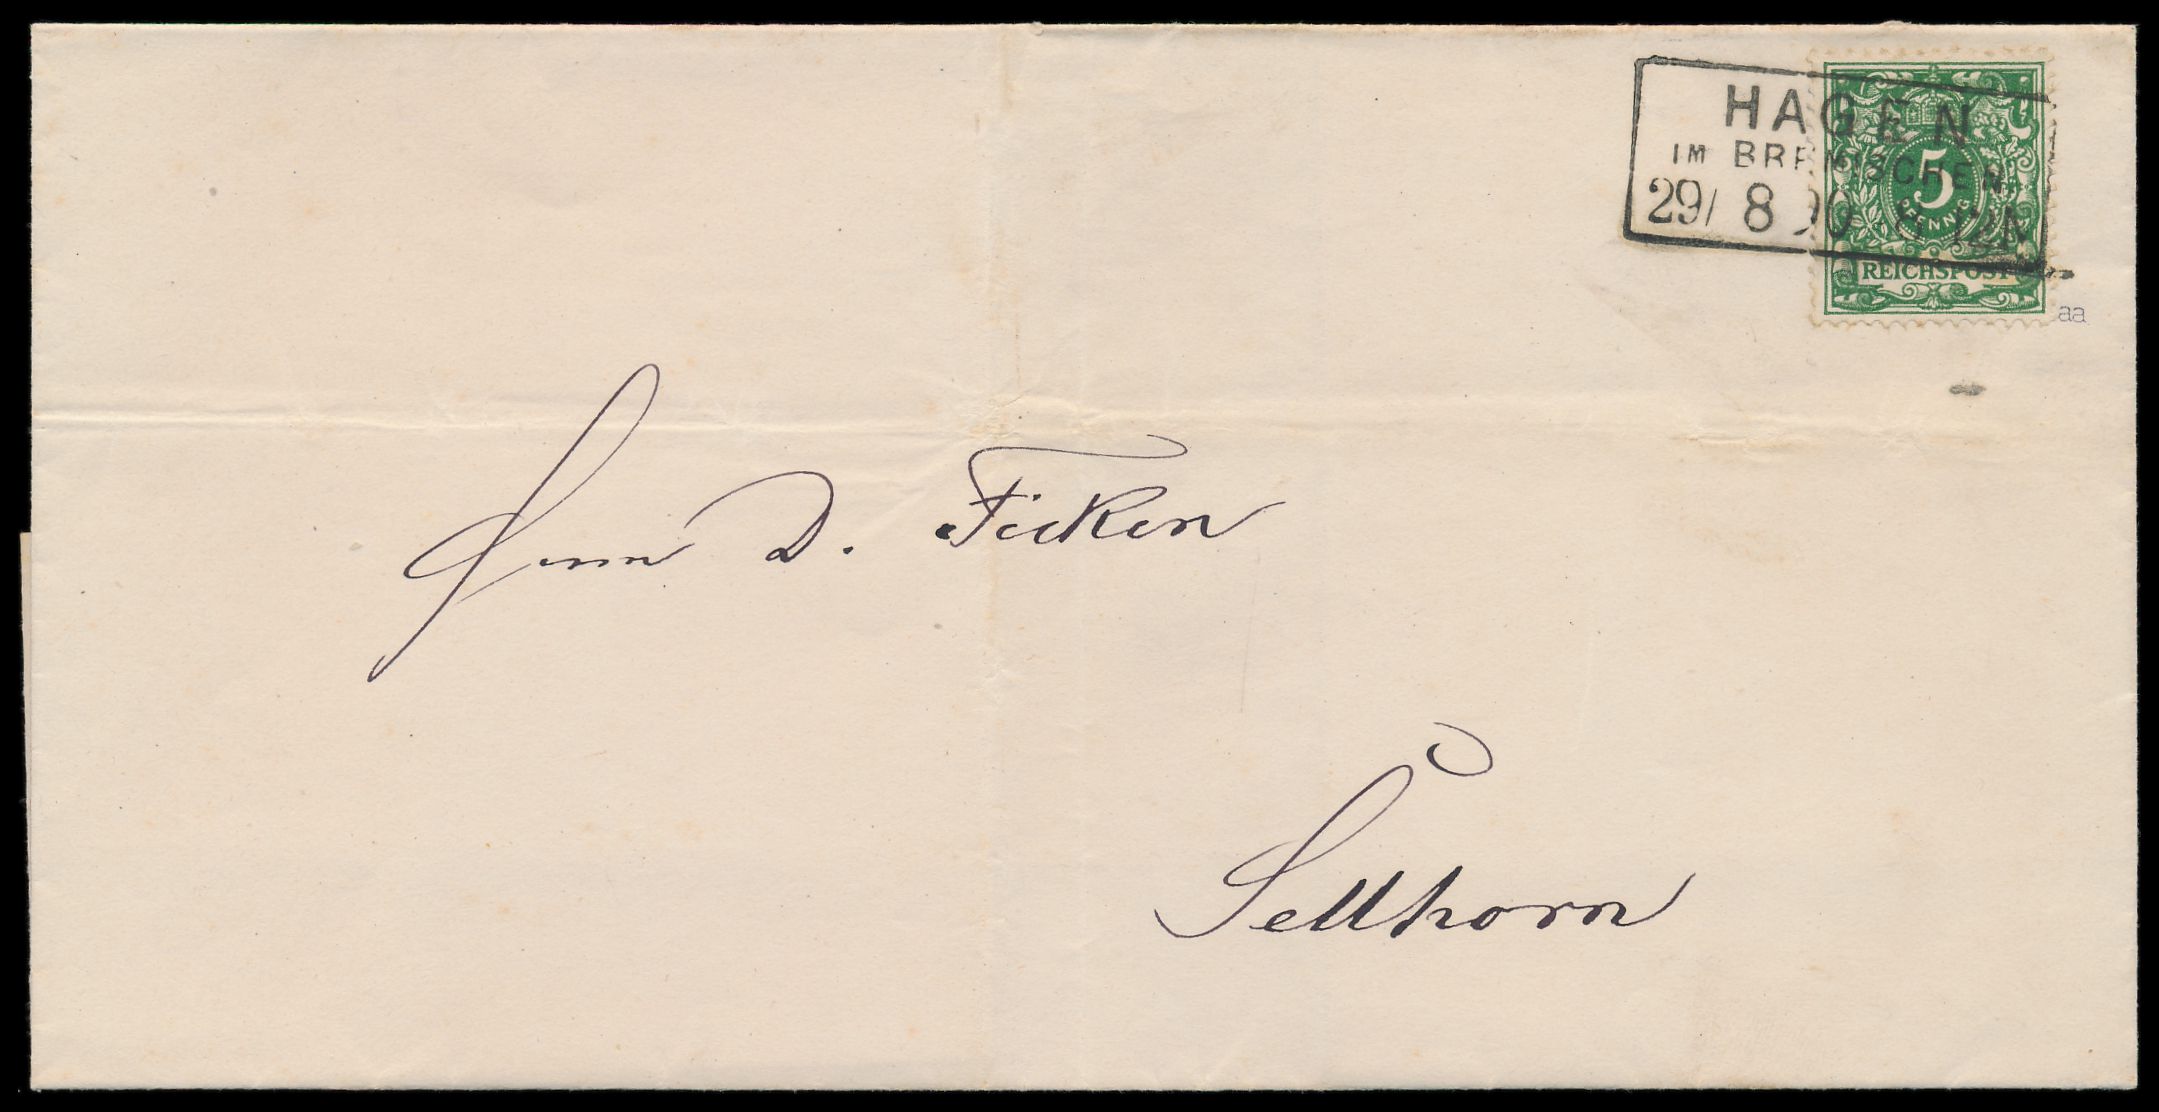 HAGEN
IM BREMISCHEN
29/ 8 90
5
PFENNIG
REICHSPOST
aa
Herrn D. Ficken
Sellhorn